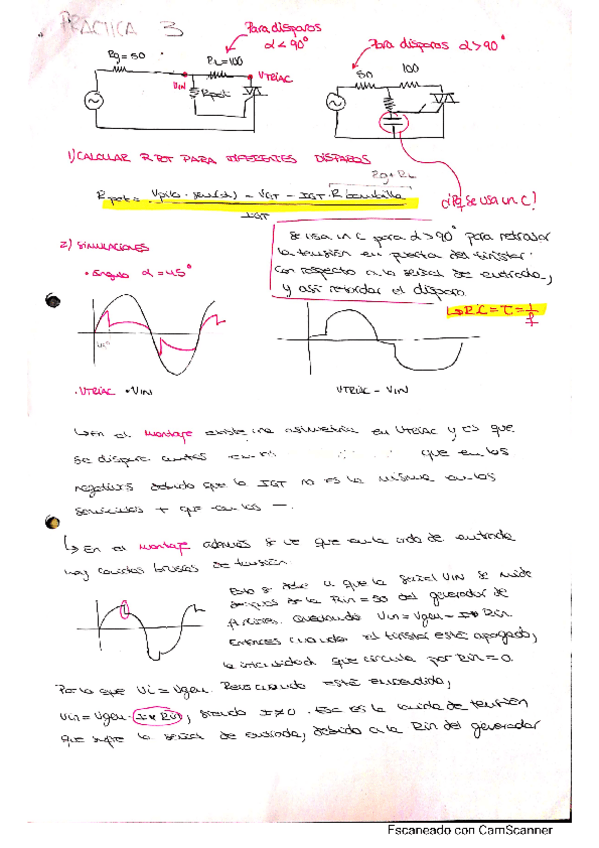 PRACTICA 3
Para disparos
α < 90°
Para disparos α > 90°
Rg = 50
RL = 100
VIN
Rpot
VTRIAC
50
100
1) CALCULAR R POT PARA DIFERENTES DISPAROS
Rg + RL
Rpot = Vpico · sen(α) - VGT - IGT · R
IGT
¿Por qué se usa un C?
Se usa un C para α > 90° para retrasar
la tensión en puerta del tiristor
con respecto a la señal de entrada,
y así retardar el disparo.
↳ R·C = τ = 1/f
2) SIMULACIONES
• Ángulo α = 45°
45°
• VTRIAC • VIN
VTRIAC - VIN
↳ En el montaje existe una asimetría en VTRIAC y es que
se dispara antes en que en los
negativos debido que la IGT no es la misma en los
semiciclos + que en los -.
↳ En el montaje además se ve que en la onda de entrada
hay caídas bruscas de tensión
Esto se debe a que la señal VIN se mide
después de la Rin = 50 del generador de
funciones. Quedando Vin = Vgen - I * Rin
Entonces cuando el tiristor está apagado,
la intensidad que circula por Rin = 0
Por lo que Vi = Vgen. Pero cuando está encendido,
Vin = Vgen - I * Rin, siendo I ≠ 0. Esa es la caída de tensión
que sufre la señal de entrada, debido a la Rin del generador
Escaneado con CamScanner